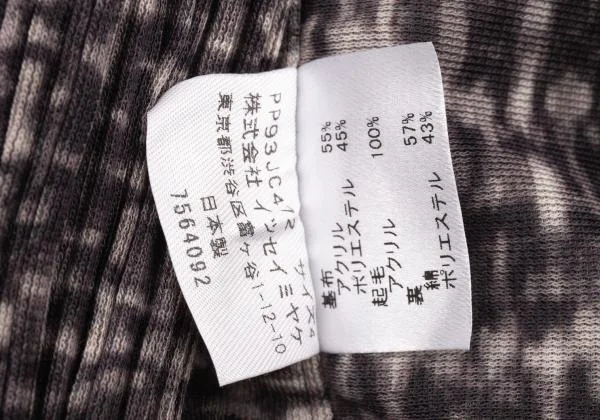 PP93JC472
サイズ4
株式会社 イッセイ ミヤケ
東京都渋谷区富ヶ谷1-12-10
日本製
7564092
基布
アクリル 55%
ポリエステル 45%
起毛
アクリル 100%
裏
綿 57%
ポリエステル 43%